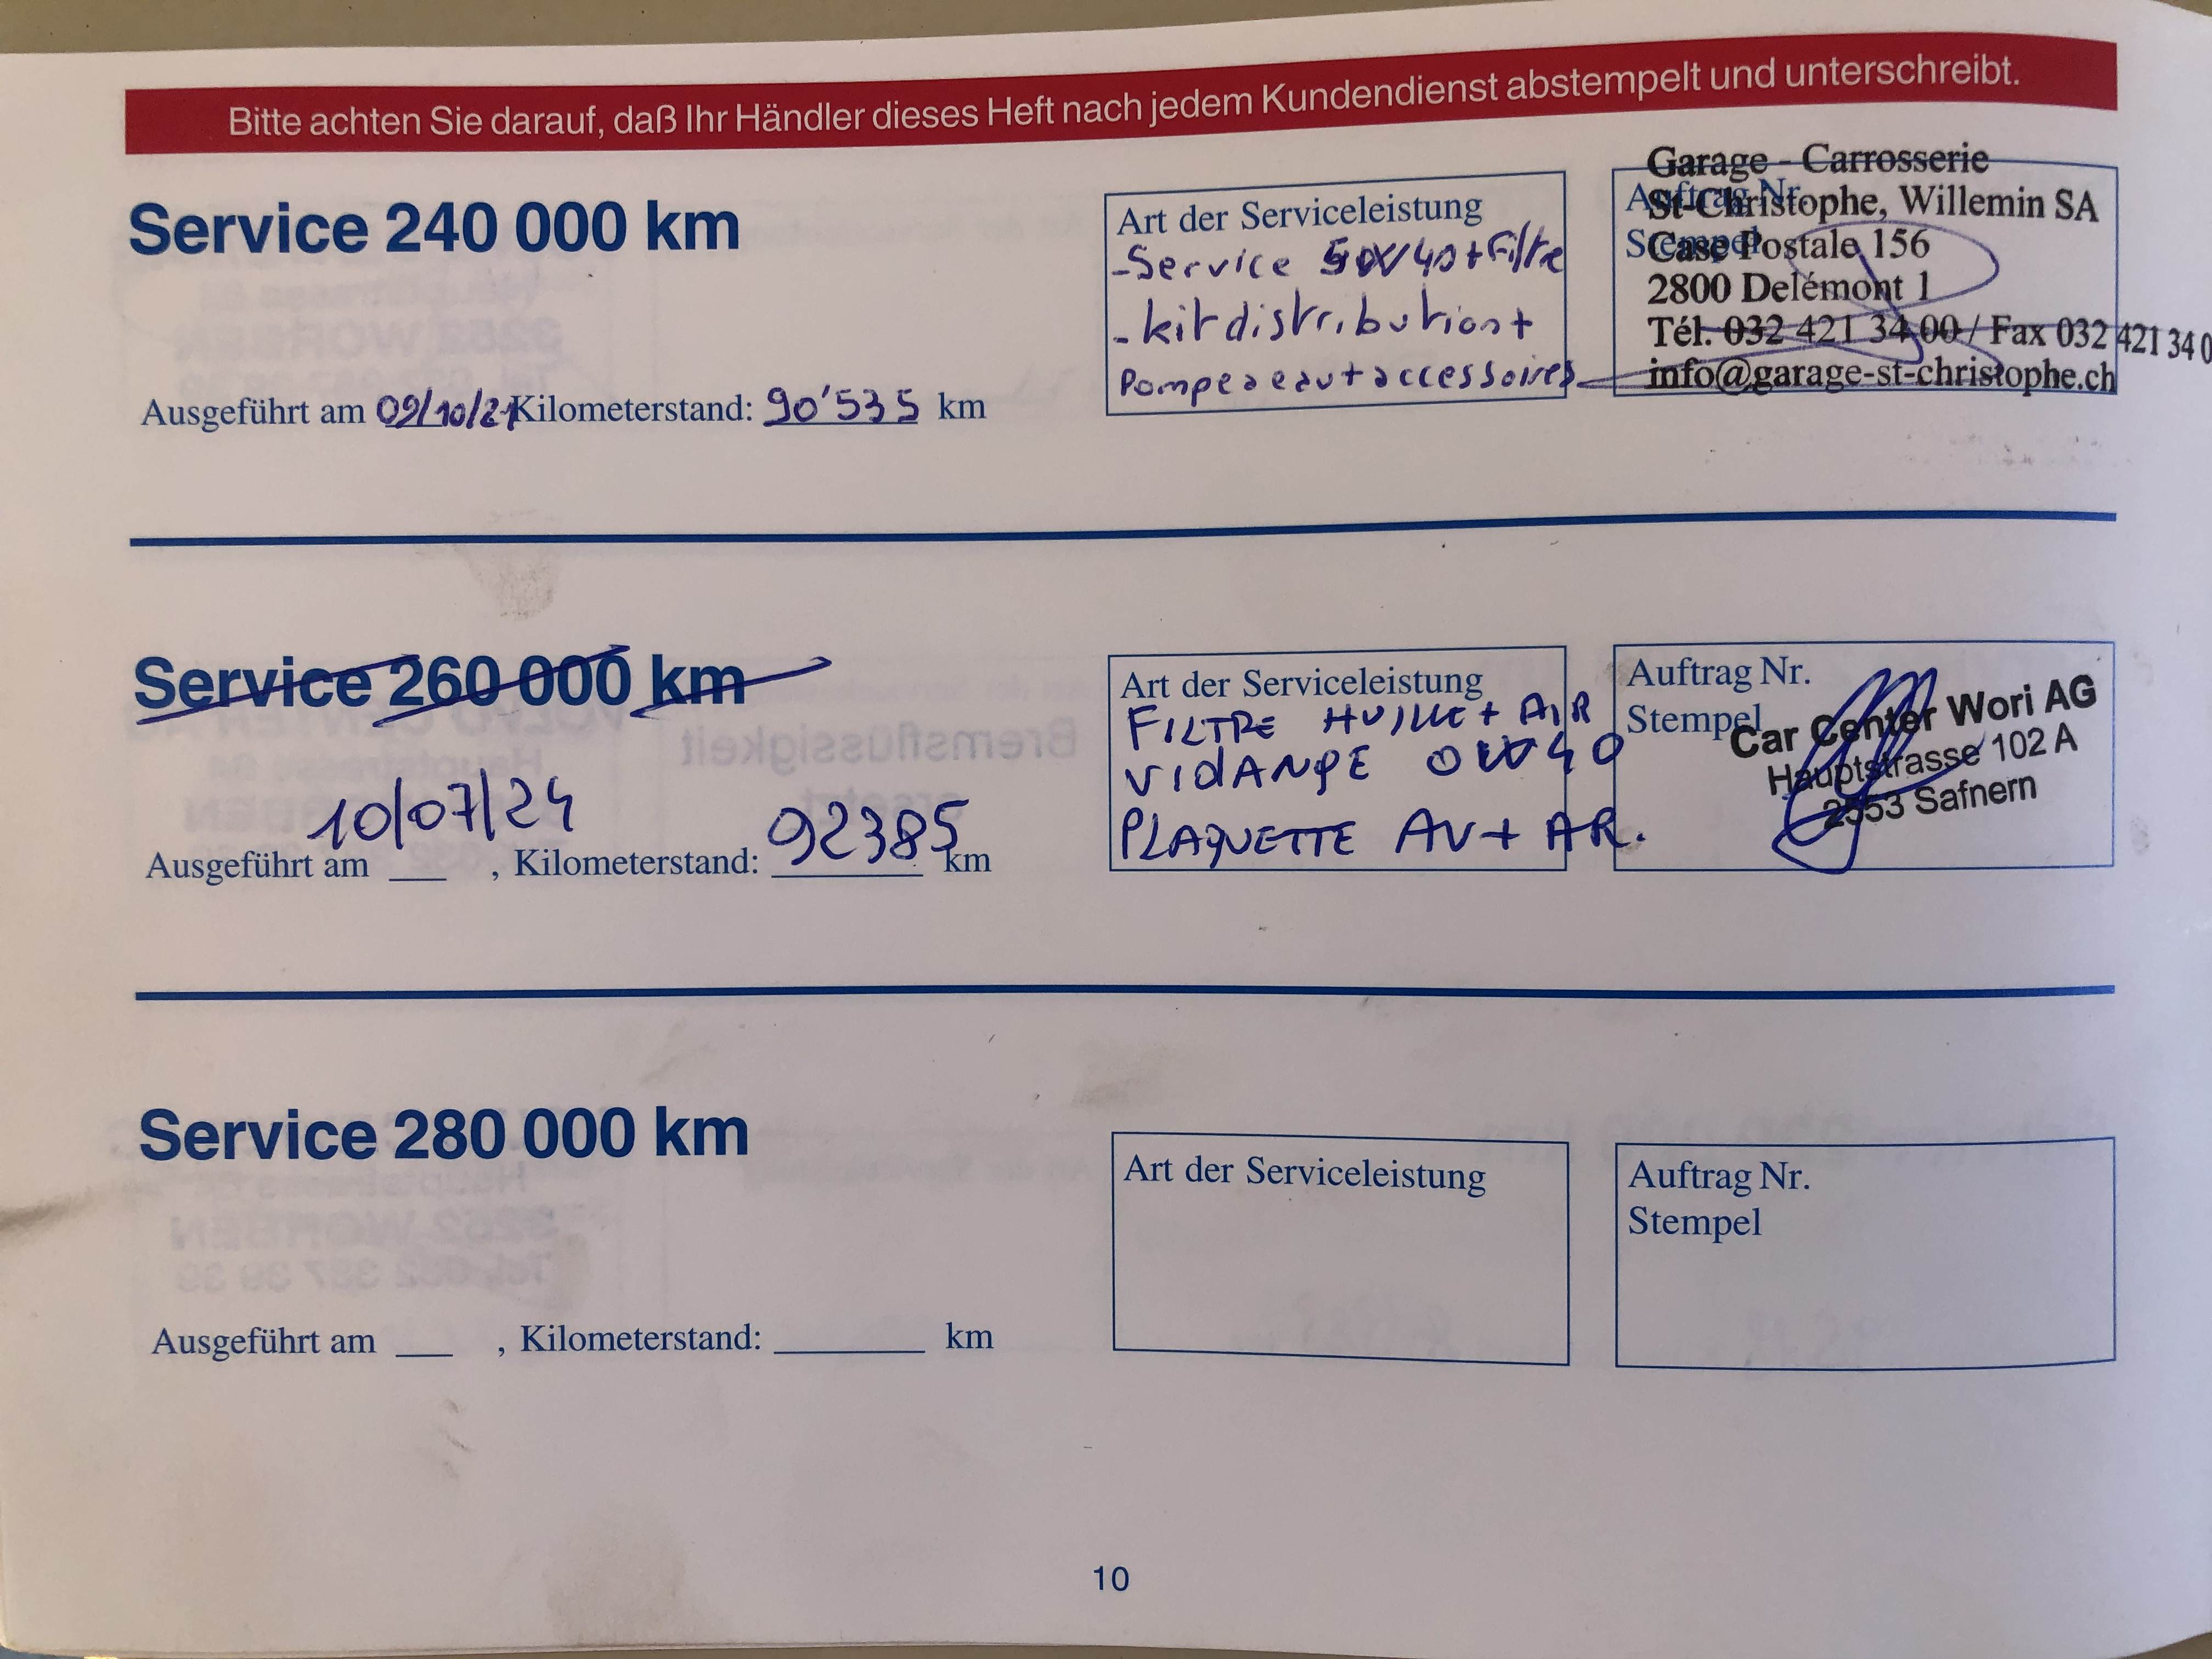 Bitte achten Sie darauf, daß Ihr Händler dieses Heft nach jedem Kundendienst abstempelt und unterschreibt.
Service 240 000 km
Ausgeführt am 09/10/21 Kilometerstand: 90'535 km
Art der Serviceleistung
-Service 5W40+Filtre
-kit distribution+
Pompe a eau+accessoires
Auftrag Nr.
Stempel
Garage - Carrosserie
St-Christophe, Willemin SA
Case Postale 156
2800 Delémont 1
Tél. 032 421 34 00 / Fax 032 421 34 0
info@garage-st-christophe.ch
Service 260 000 km
Ausgeführt am 10/07/24, Kilometerstand: 92385 km
Art der Serviceleistung
FILTRE HUILE + AIR
VIDANGE 0W40
PLAQUETTE AV+ AR.
Auftrag Nr.
Stempel
Car Center Wori AG
Hauptstrasse 102 A
2553 Safnern
Service 280 000 km
Ausgeführt am ___ , Kilometerstand: ________ km
Art der Serviceleistung
Auftrag Nr.
Stempel
10